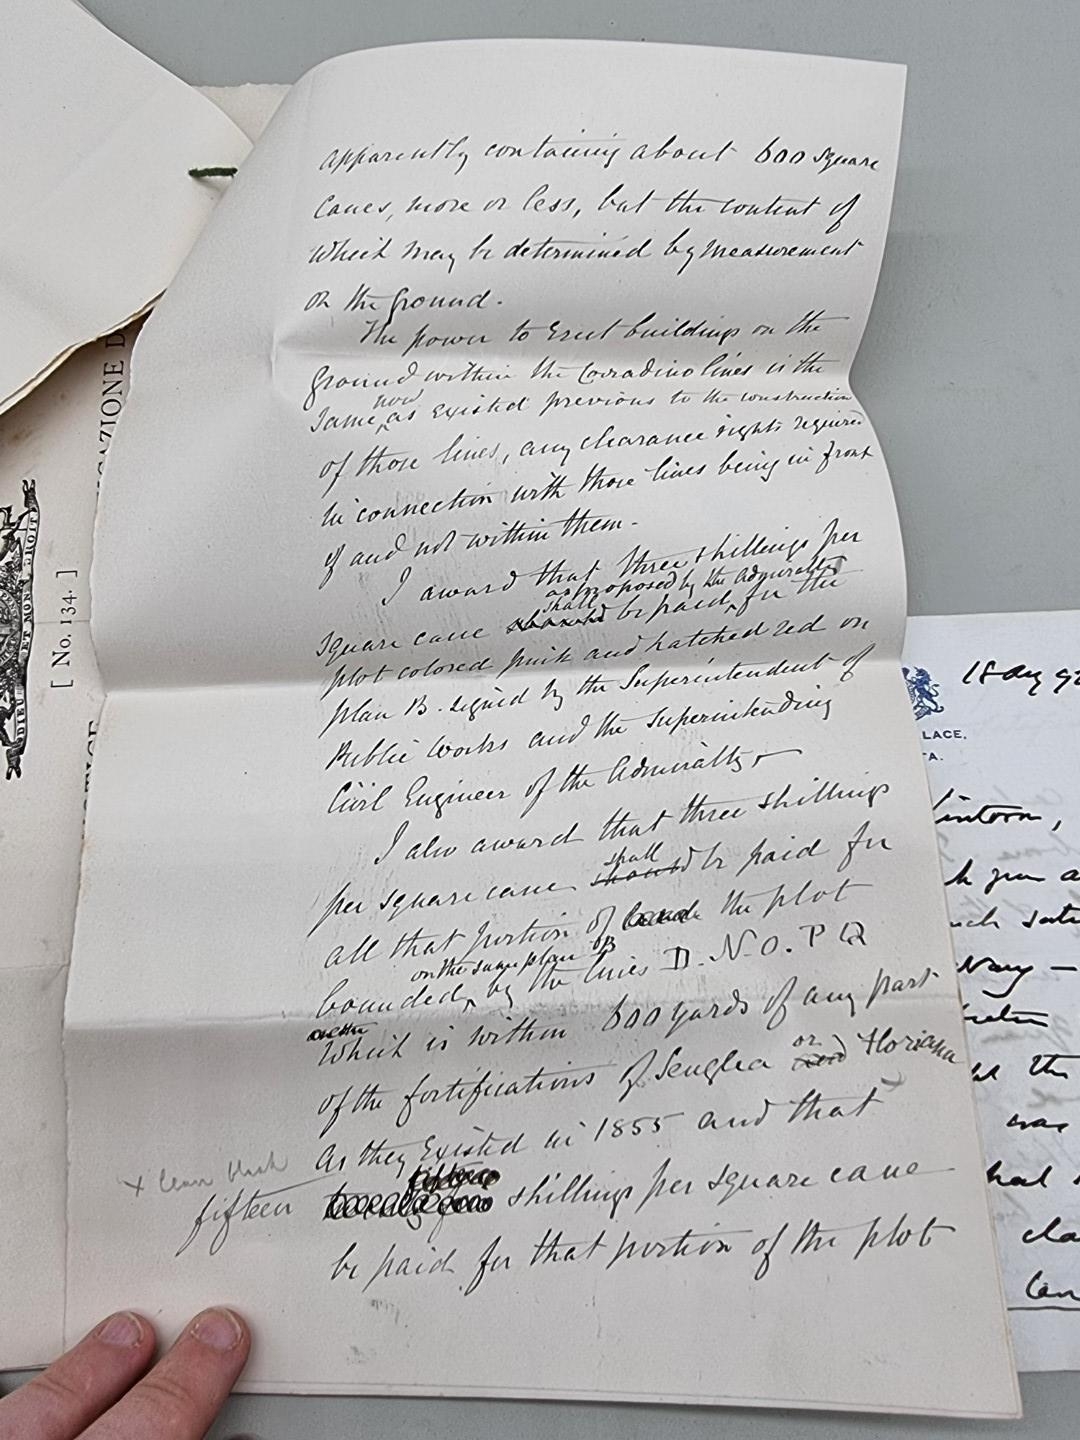 apparently containing about 600 square
canes, more or less, but the content of
which may be determined by measurement
on the ground.
The power to Erect buildings on the
ground within the Corradino lines is the
now
same, as Existed previous to the construction
of those lines, any clearance rights required
in connection with those lines being in front
of and not within them.
I award that three shillings per
as proposed by the Admiralty
shall
square cane should be paid, for the
plot colored pink and hatched red on
plan B. signed by the Superintendent of
Public Works and the Superintending
Civil Engineer of the Admiralty,
I also award that three shillings
shall
per square cane should be paid for
all that portion of the plot
on the same plan B
bounded, by the lines D. N. O. P Q
which is within 600 yards of any part
or
of the fortifications of Senglea and Floriana
As they Existed in 1855 and that
fifteen
fifteen shillings per square cane
be paid for that portion of the plot
[No. 134.]
DIEU ET MON DROIT
LACE,
TA.
intorn,
Navy —
the
was
had